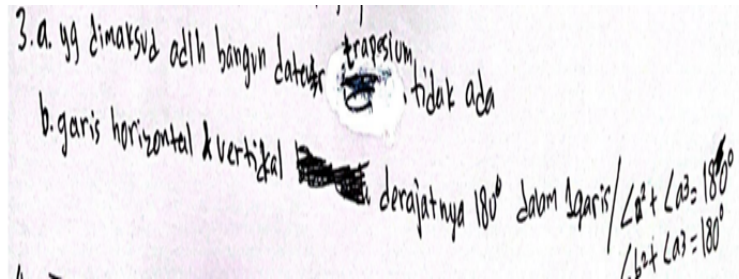 3.a. yg dimaksud adlh bangun datar trapesium, tidak ada
b. garis horizontal & vertikal derajatnya 180° dalam 1garis/∠a²+∠a3=180°
∠b2+∠a3=180°